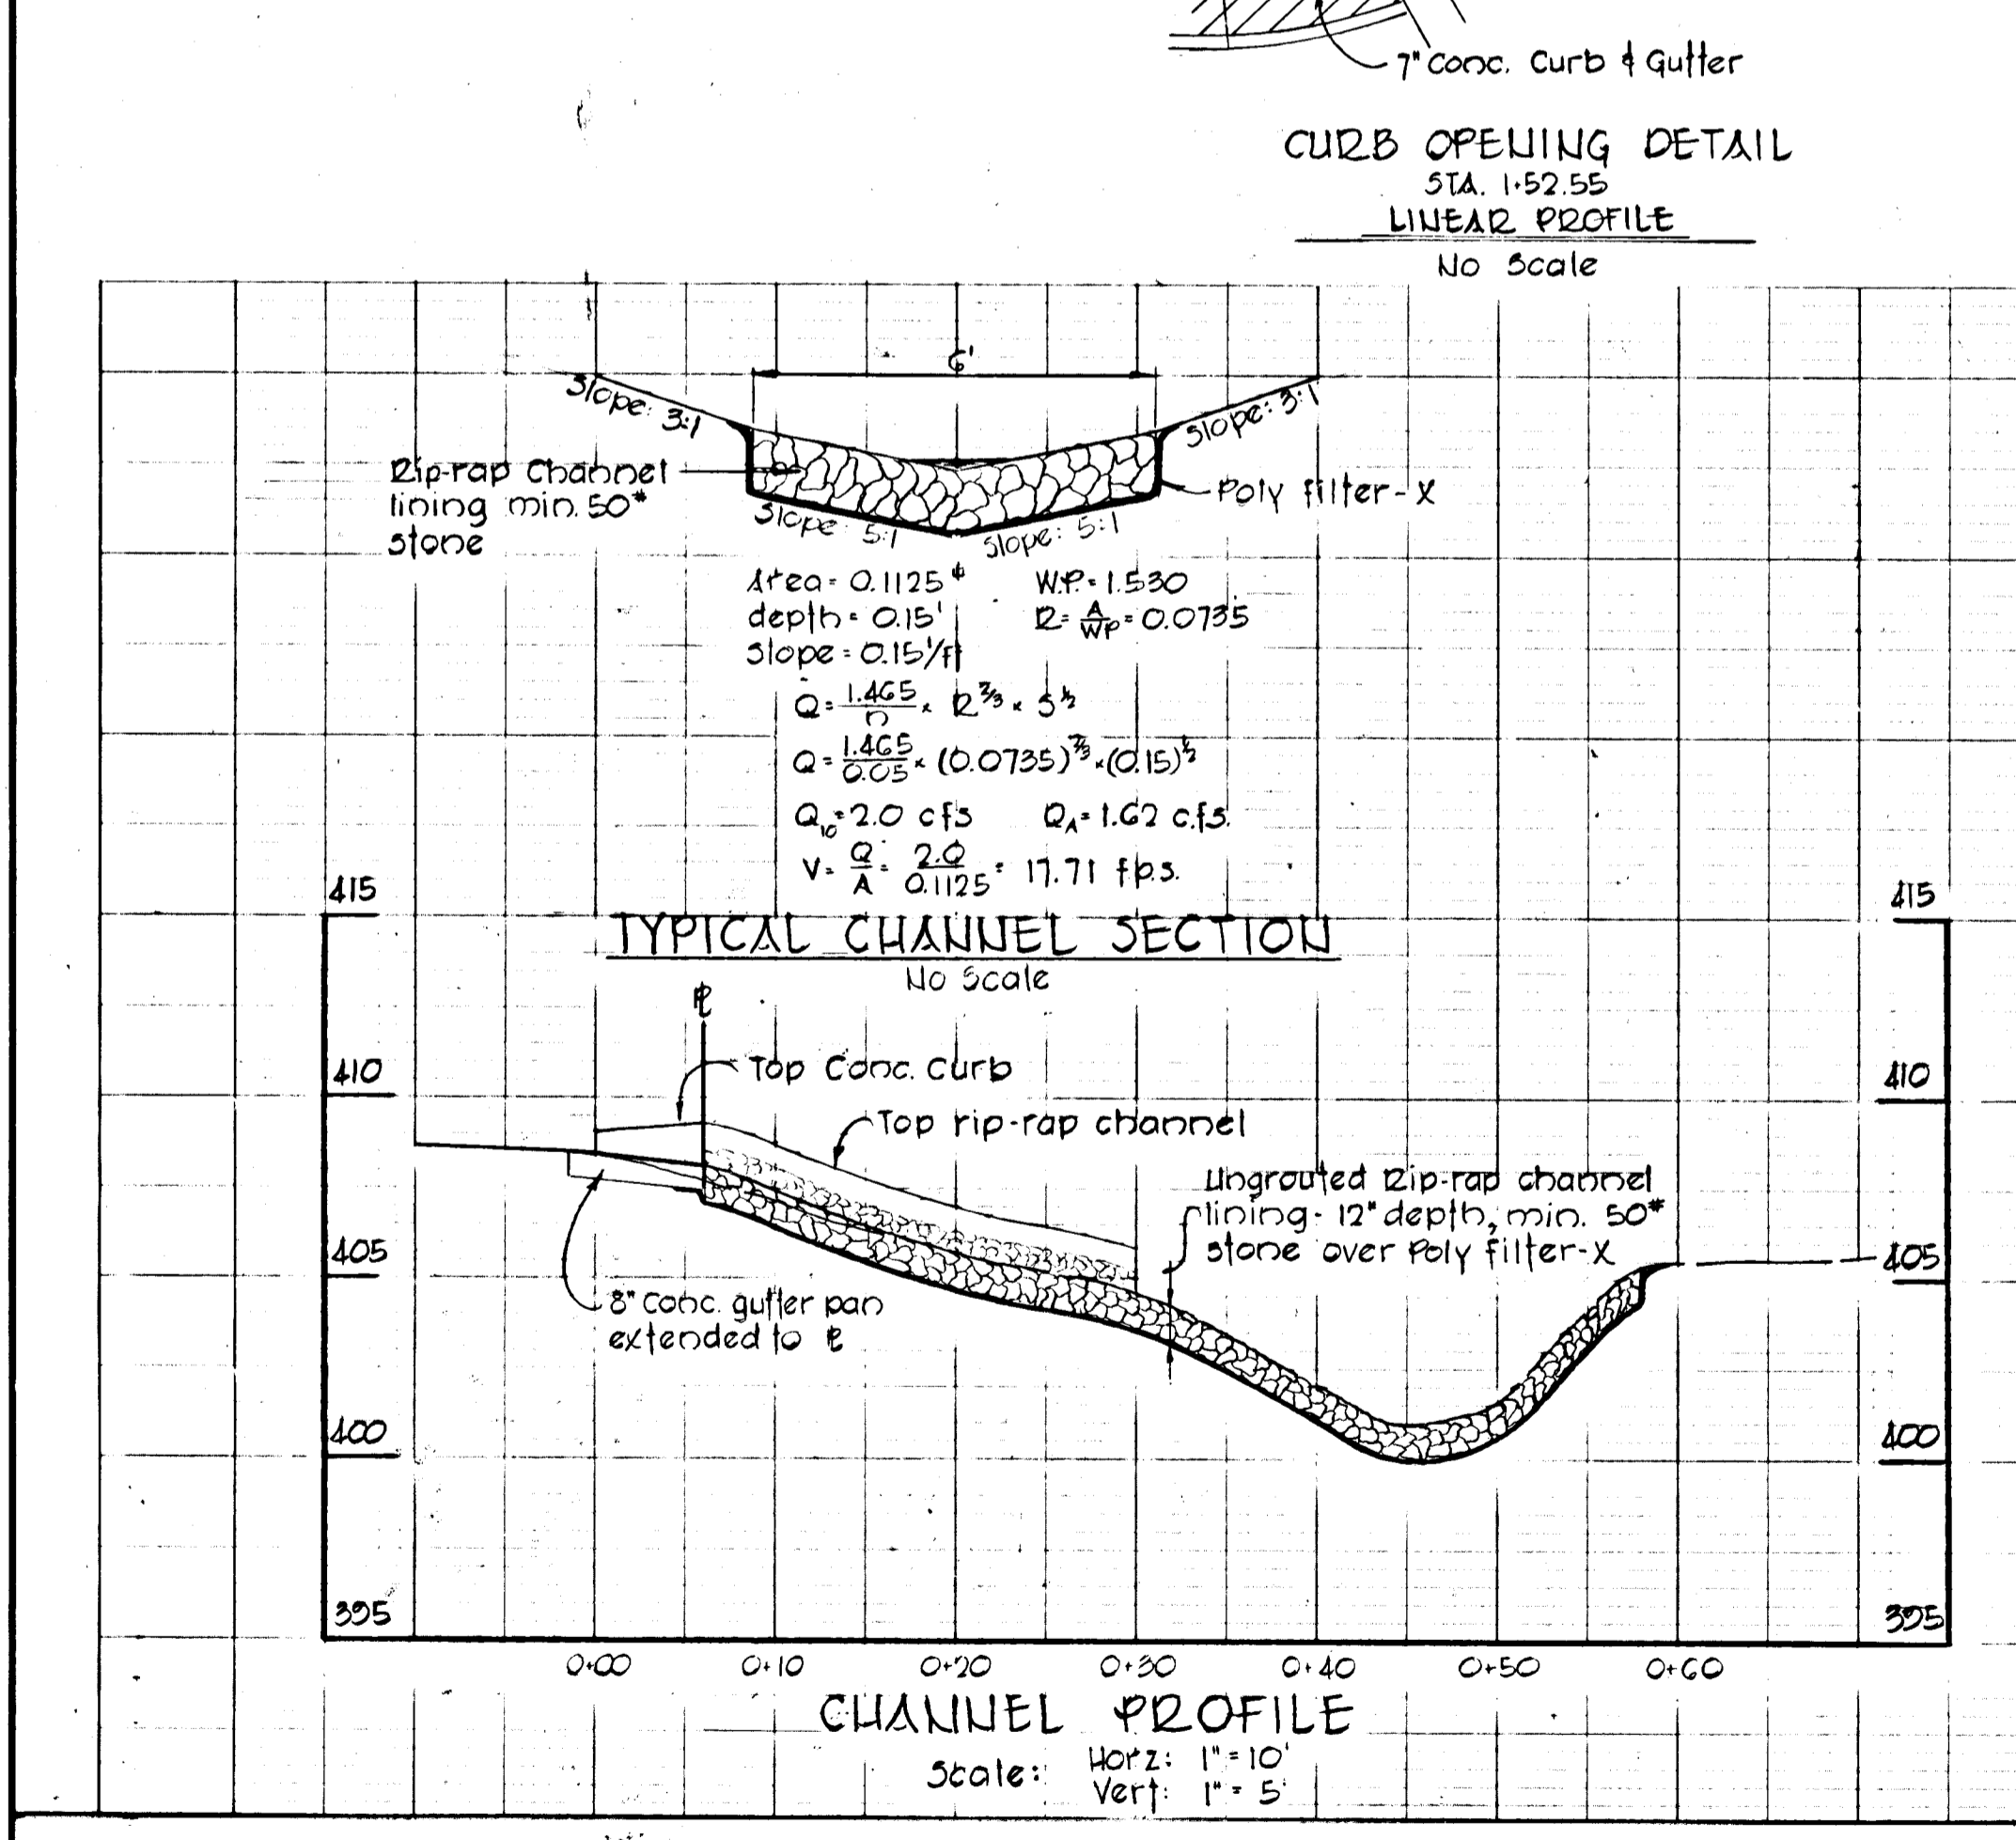 7" Conc. Curb & Gutter
CURB OPENING DETAIL
STA. 1+52.55
LINEAR PROFILE
No Scale
6'
Slope: 3:1
Slope: 3:1
Rip-rap Channel
lining min. 50#
stone
Poly filter-X
Slope: 5:1
Slope: 5:1
Area = 0.1125 ⌽ W.P. = 1.530
depth = 0.15' R = A/WP = 0.0735
Slope = 0.15'/ft
Q = 1.465/n × R^2/3 × S^1/2
Q = 1.465/0.05 × (0.0735)^2/3 × (0.15)^1/2
Q10 = 2.0 cfs QA = 1.62 c.f.s.
V = Q/A = 2.0/0.1125 = 17.71 f.p.s.
TYPICAL CHANNEL SECTION
No Scale
415
415
℄
Top Conc. Curb
410
410
Top rip-rap channel
Ungrouted Rip-rap channel
lining - 12" depth, min. 50#
stone over Poly filter-X
405
405
8" conc. gutter pan
extended to ℄
400
400
395
395
0+00 0+10 0+20 0+30 0+40 0+50 0+60
CHANNEL PROFILE
Scale: Horz: 1" = 10'
Vert: 1" = 5'